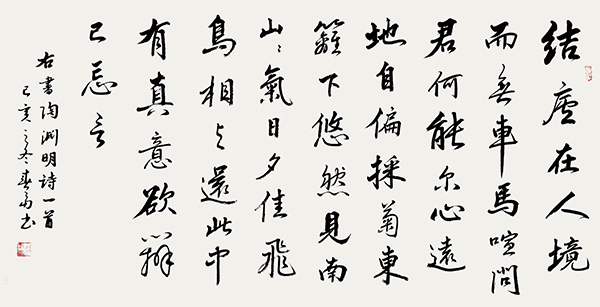 結廬在人境
而無車馬喧問
君何能尓心遠
地自偏採菊東
籬下悠然見南
山〻氣日夕佳飛
鳥相与還此中
有真意欲辨
已忘言
右書陶渊明詩一首
己亥之冬春书